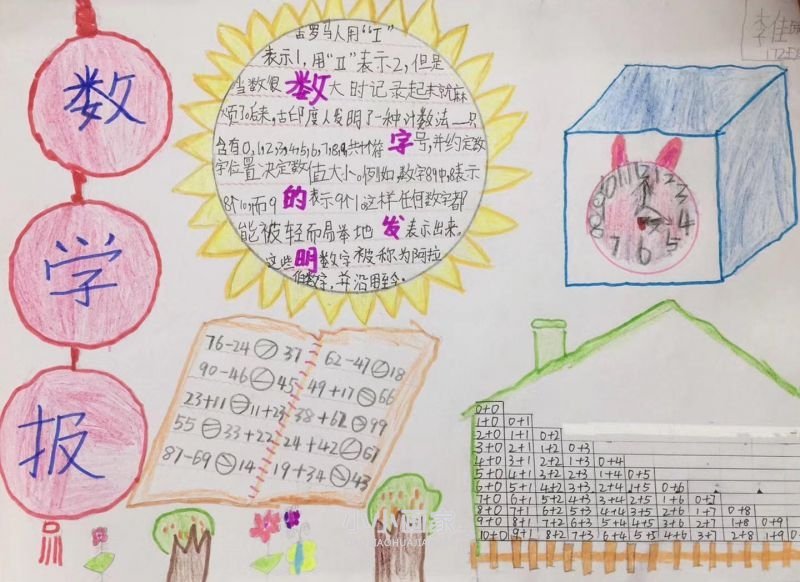 数
学
报
古罗马人用“I”
表示1,用“II”表示2,但是
当数很数大时记录起来就麻
烦了。后来,古印度人发明了一种计数法——只
含有0,1,2,3,4,5,6,7,8,9,共十个符字号,并约定数
字位置决定数值大小。例如,数字89中,8表示
8个10,而9的表示9个1。这样任何数字都
能被轻而易举地发表示出来。
这些明数字被称为阿拉
伯数字,并沿用至今。
12 1 2 3 4 5 6 7 8 9 10 11
76-24>37
90-46<45
23+11=11+23
55=33+22
87-69>14
62-47<18
49+17=66
38+62>99
24+42<67
19+34>43
0+0
1+0 0+1
2+0 1+1 0+2
3+0 2+1 1+2 0+3
4+0 3+1 2+2 1+3 0+4
5+0 4+1 3+2 2+3 1+4 0+5
6+0 5+1 4+2 3+3 2+4 1+5 0+6
7+0 6+1 5+2 4+3 3+4 2+5 1+6 0+7
8+0 7+1 6+2 5+3 4+4 3+5 2+6 1+7 0+8
9+0 8+1 7+2 6+3 5+4 4+5 3+6 2+7 1+8 0+9
10+0 9+1 8+2 7+3 6+4 5+5 4+6 3+7 2+8 1+9
小小画家